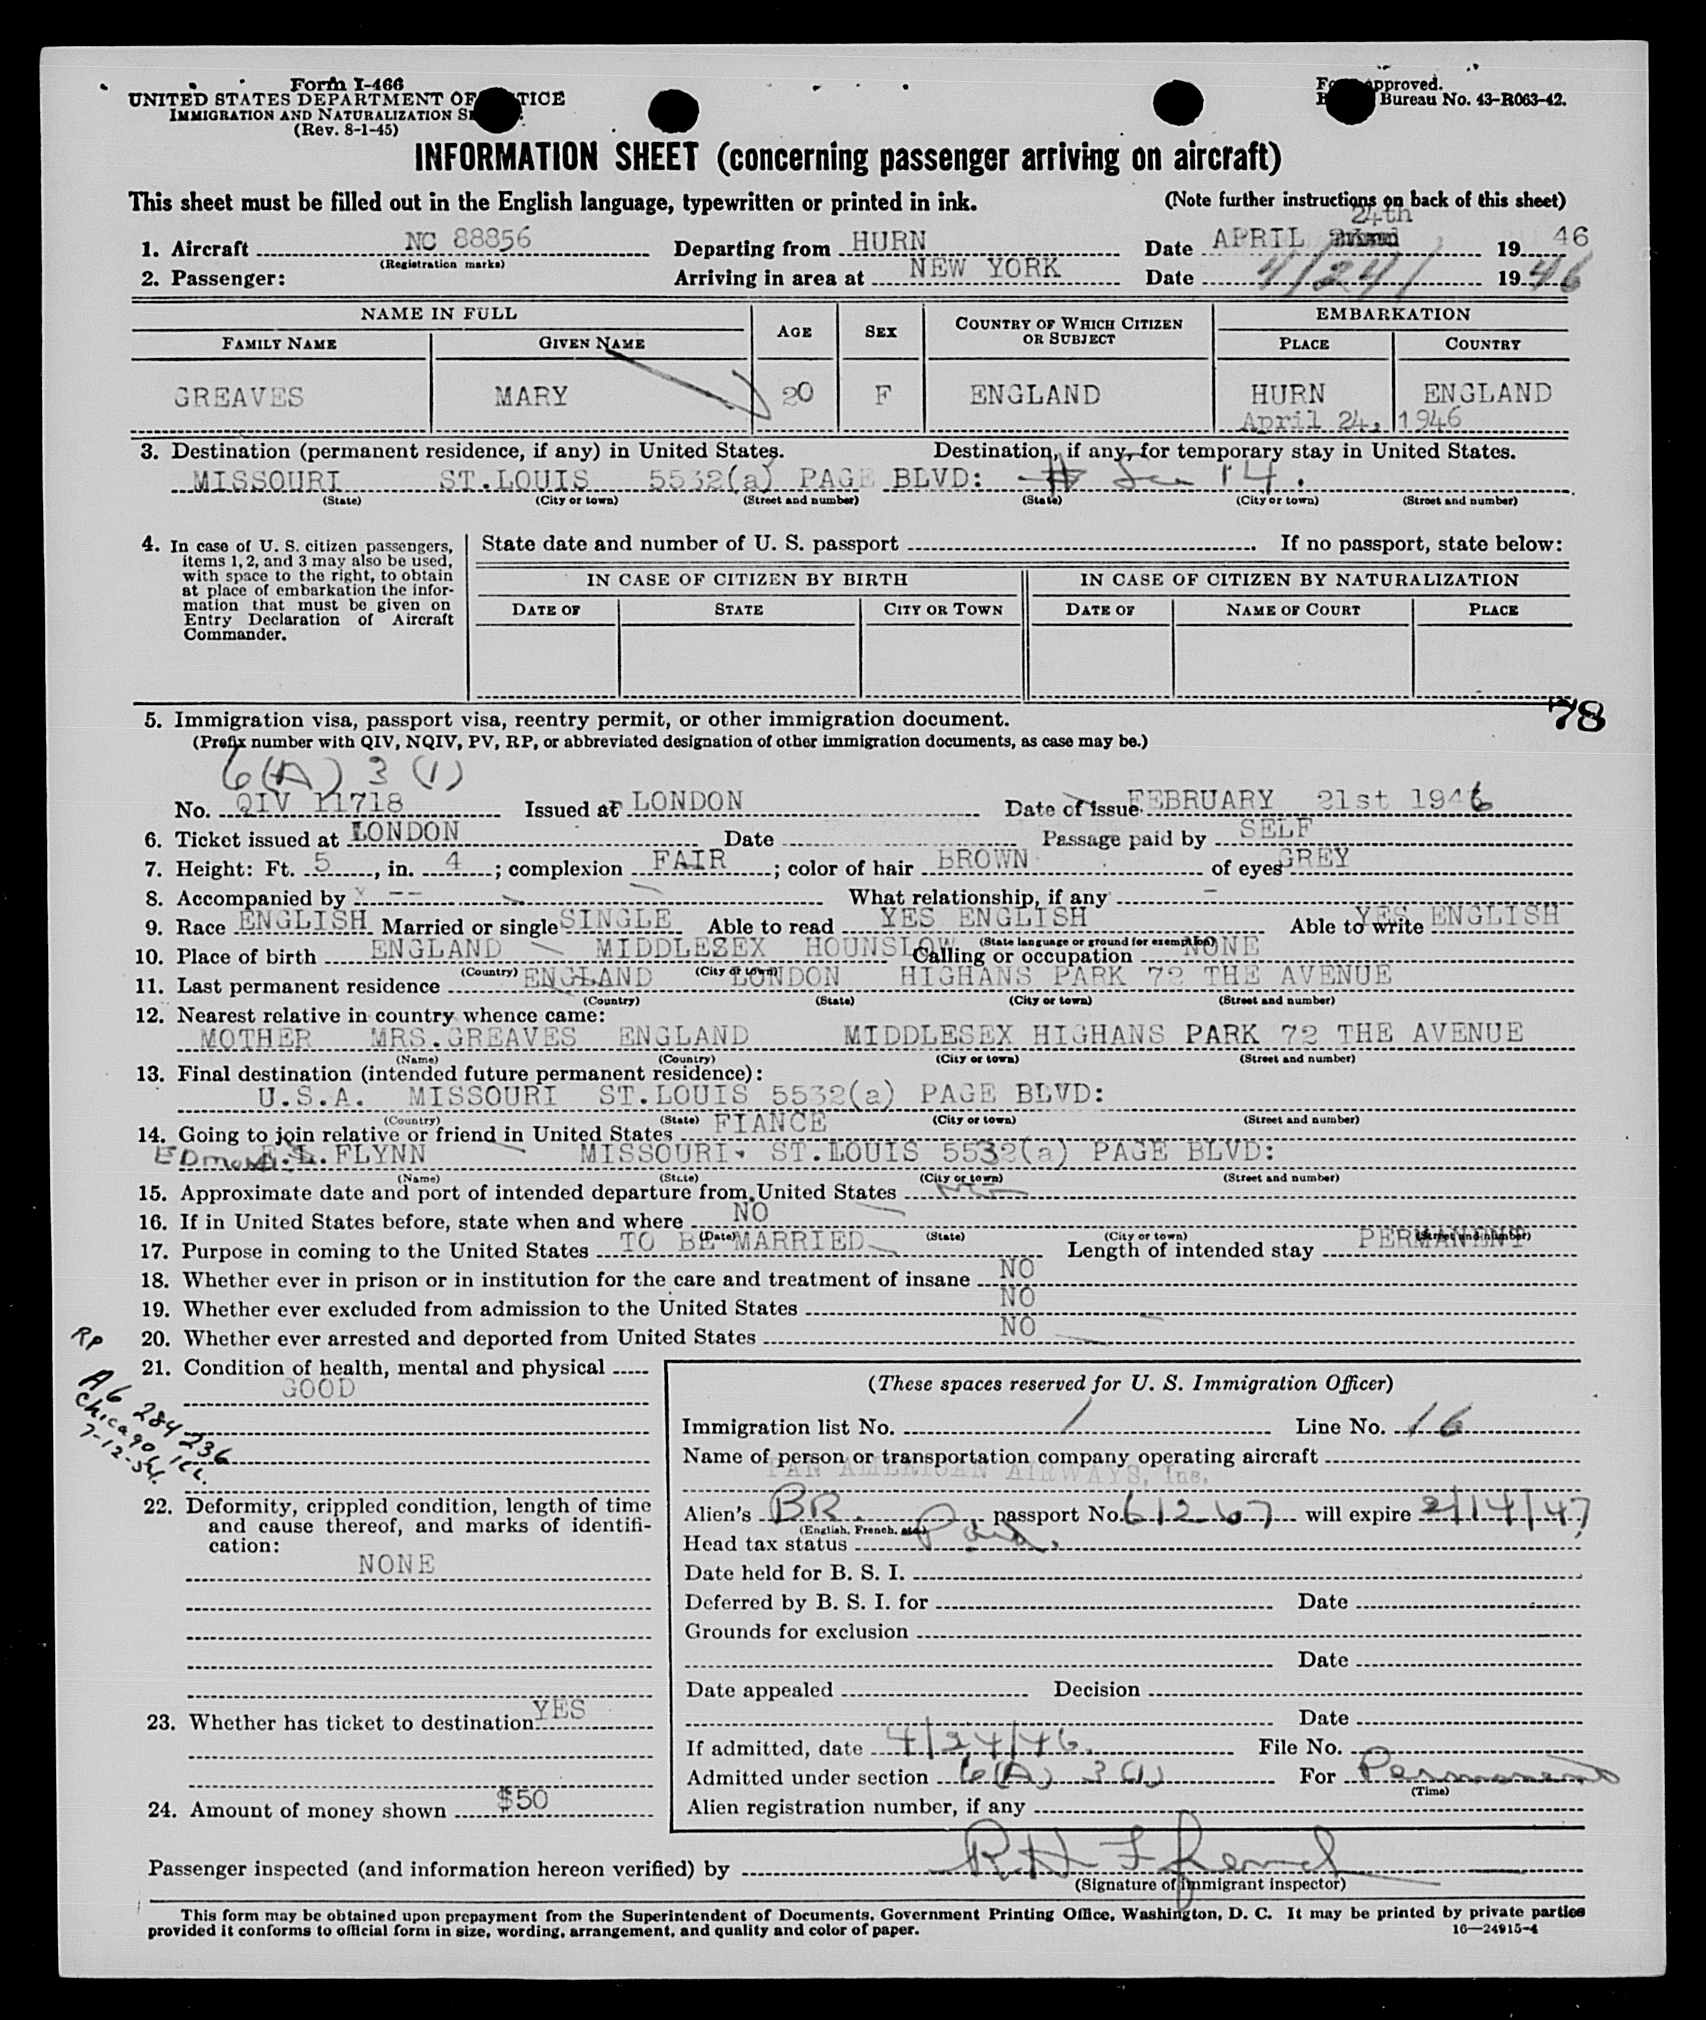 Form I-466
UNITED STATES DEPARTMENT OF
IMMIGRATION AND NATURALIZATION
(Rev. 8-1-45)
Approved.
Bureau No. 43-R063-42.
INFORMATION SHEET (concerning passenger arriving on aircraft)
This sheet must be filled out in the English language, typewritten or printed in ink. (Note further instructions on back of this sheet)
24th
1. Aircraft NC 88856 Departing from HURN Date APRIL 1946
(Registration marks)
2. Passenger: Arriving in area at NEW YORK Date 4/24/ 1946
NAME IN FULL AGE SEX COUNTRY OF WHICH CITIZEN OR SUBJECT EMBARKATION
FAMILY NAME GIVEN NAME PLACE COUNTRY
GREAVES MARY 20 F ENGLAND HURN ENGLAND
April 24, 1946
3. Destination (permanent residence, if any) in United States. Destination, if any, for temporary stay in United States.
MISSOURI ST.LOUIS 5532(a) PAGE BLVD: # See 14.
(State) (City or town) (Street and number) (State) (City or town) (Street and number)
4. In case of U. S. citizen passengers, items 1, 2, and 3 may also be used, with space to the right, to obtain at place of embarkation the information that must be given on Entry Declaration of Aircraft Commander.
State date and number of U. S. passport . If no passport, state below:
IN CASE OF CITIZEN BY BIRTH IN CASE OF CITIZEN BY NATURALIZATION
DATE OF STATE CITY OR TOWN DATE OF NAME OF COURT PLACE
78
5. Immigration visa, passport visa, reentry permit, or other immigration document.
(Prefix number with QIV, NQIV, PV, RP, or abbreviated designation of other immigration documents, as case may be.)
6(A) 3 (1)
No. QIV 11718 Issued at LONDON Date of issue FEBRUARY 21st 1946
6. Ticket issued at LONDON Date Passage paid by SELF
7. Height: Ft. 5, in. 4; complexion FAIR; color of hair BROWN of eyes GREY
8. Accompanied by -- What relationship, if any -
9. Race ENGLISH Married or single SINGLE Able to read YES ENGLISH Able to write YES ENGLISH
(State language or ground for exemption)
10. Place of birth ENGLAND MIDDLESEX HOUNSLOW Calling or occupation NONE
(Country) (City or town)
11. Last permanent residence ENGLAND LONDON HIGHANS PARK 72 THE AVENUE
(Country) (State) (City or town) (Street and number)
12. Nearest relative in country whence came:
MOTHER MRS.GREAVES ENGLAND MIDDLESEX HIGHANS PARK 72 THE AVENUE
(Name) (Country) (City or town) (Street and number)
13. Final destination (intended future permanent residence):
U.S.A. MISSOURI ST.LOUIS 5532(a) PAGE BLVD:
(Country) (State) (City or town) (Street and number)
14. Going to join relative or friend in United States FIANCE
L.FLYNN MISSOURI. ST.LOUIS 5532(a) PAGE BLVD:
(Name) (State) (City or town) (Street and number)
15. Approximate date and port of intended departure from United States
16. If in United States before, state when and where NO
(Date) (State) (City or town) (Street and number)
17. Purpose in coming to the United States TO BE MARRIED Length of intended stay PERMANENT
18. Whether ever in prison or in institution for the care and treatment of insane NO
19. Whether ever excluded from admission to the United States NO
20. Whether ever arrested and deported from United States NO
RP
A6 284 236
Chicago, Ill.
7-12-54.
21. Condition of health, mental and physical
GOOD
22. Deformity, crippled condition, length of time and cause thereof, and marks of identification:
NONE
23. Whether has ticket to destination YES
24. Amount of money shown $50
(These spaces reserved for U. S. Immigration Officer)
Immigration list No. 1 Line No. 16
Name of person or transportation company operating aircraft
PAN AMERICAN AIRWAYS, Inc.
Alien's BR. passport No. 61267 will expire 2/14/47
(English, French, etc.)
Head tax status Paid.
Date held for B. S. I.
Deferred by B. S. I. for Date
Grounds for exclusion
Date
Date appealed Decision
Date
If admitted, date 4/24/46. File No.
Admitted under section 6(A) 3(1) For Permanent
(Time)
Alien registration number, if any
Passenger inspected (and information hereon verified) by
(Signature of immigrant inspector)
This form may be obtained upon prepayment from the Superintendent of Documents, Government Printing Office, Washington, D. C. It may be printed by private parties
provided it conforms to official form in size, wording, arrangement, and quality and color of paper. 16—24915-4